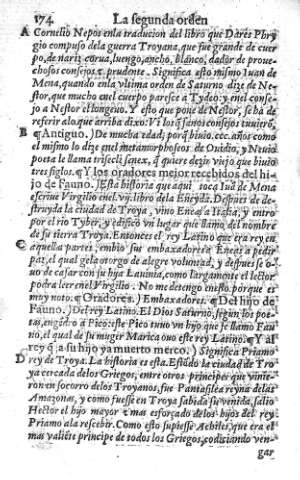 174. La segunda orden
A Cornelio Nepos enla traducion del libro que Dares Phry
gio compuso dela guerra Troyana, que fue grande de cuer
po, de nariz corua, luengo, ancho, blanco, dador de proue-
chosos consejos & prudente. Significa esto mismo Iuan de
Mena, quando enla vltima orden de Saturno dize de Ne-
stor, que mucho enel cuerpo paresce a Tydeo: y enel conse-
jo a Nestor el longeuo. Y esto que pone de Nestor, se ha de
referir alo que arriba dixo: Vi los q̃ sanos consejos tuuierõ,
B ¶ Antiguo.) De mucha edad; porq̃ biuio .ccc. años como
el mismo lo dize enel metamorphoseos de Ouidio, y Neuio
poeta le llama trisecli senex, q̃ quiere dezir viejo que biuio
tres siglos. ¶ Y los oradores mejor recebidos del hi-
jo de Fauno. ) Esta historia que aqui toca Iuã de Mena
escriue Virgilio enel .vij. libro dela Eneyda. Despues de de-
struyda la ciudad de Troya, vino Eneas a Italia, y entro
por el rio Tyber, y edificó vn lugar que llamó del nombre
de su tierra Troya. Entonces el rey Latino que era rey en
C aquella parte, embio sus embaxadores a Eneas a pedir
paz, el qual gela otorgo de alegre voluntad, y despues se o-
uo de casar con su hija Lauinia, como largamente el lector
podra leer enel Virgilio. No me detengo enesto porque es
muy noto. ¶ Oradores.) Embaxadores. ¶ Del hijo de
Fauno. ) Del rey Latino. El Dios Saturno, segun los poe-
tas, engẽdro a Pico: este Pico tuuo vn hijo que se llamo Fau
no, el qual de su muger Marica ouo este rey Latino. ¶ Y al
rey q̃ a su hijo ya muerto merco. ) Significa Priamo
D rey de Troya. La historia es esta. Estãdo la ciudad de Tro
ya cercada delos Griegos, entre otros principes que vinie-
ron en socorro delos Troyanos, fue Pantasilea reyna delas
Amazonas, y como fuesse en Troya sabida su venida, salio
Hector el hijo mayor & mas esforçado delos hijos del rey
Priamo ala rescebir. Como esto supiesse Achiles, que era el
mas valiẽte principe de todos los Griegos, codiciando ven-
gar